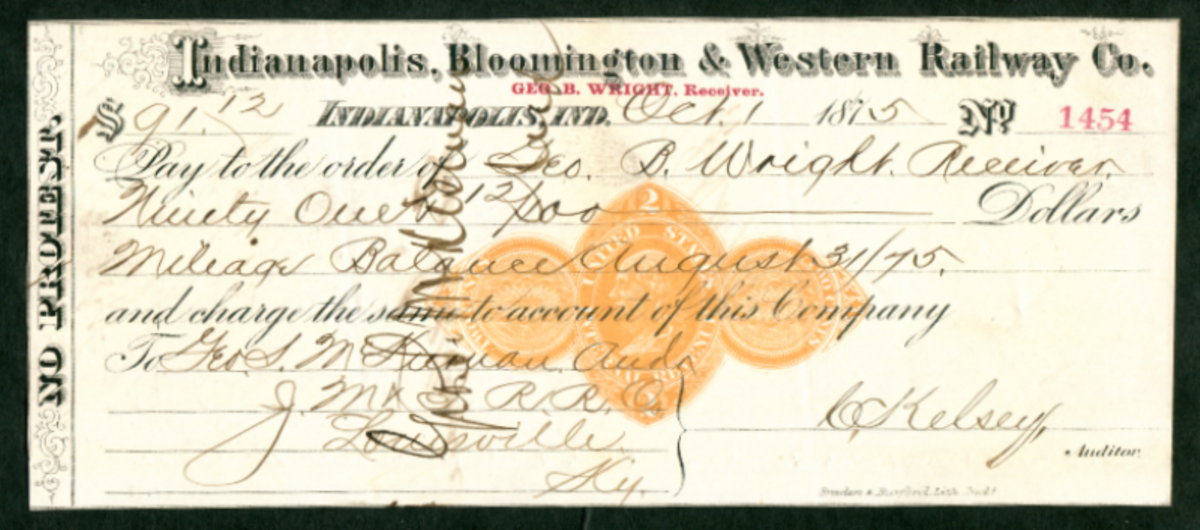 Indianapolis, Bloomington & Western Railway Co.
GEO. B. WRIGHT, Receiver.
$ 91.12 INDIANAPOLIS, IND. Oct. 1 1875 No. 1454
Pay to the order of Geo. B. Wright. Receiver.
Ninety One & 12/100 Dollars
Mileage Balance August 31/75.
and charge the same to account of this Company
To Geo. S. McKiernan. Aud.
J. M. & I. R. R. Co.
Louisville
Ky.
C. Kelsey,
Auditor
NO PROTEST.
2
UNITED STATES